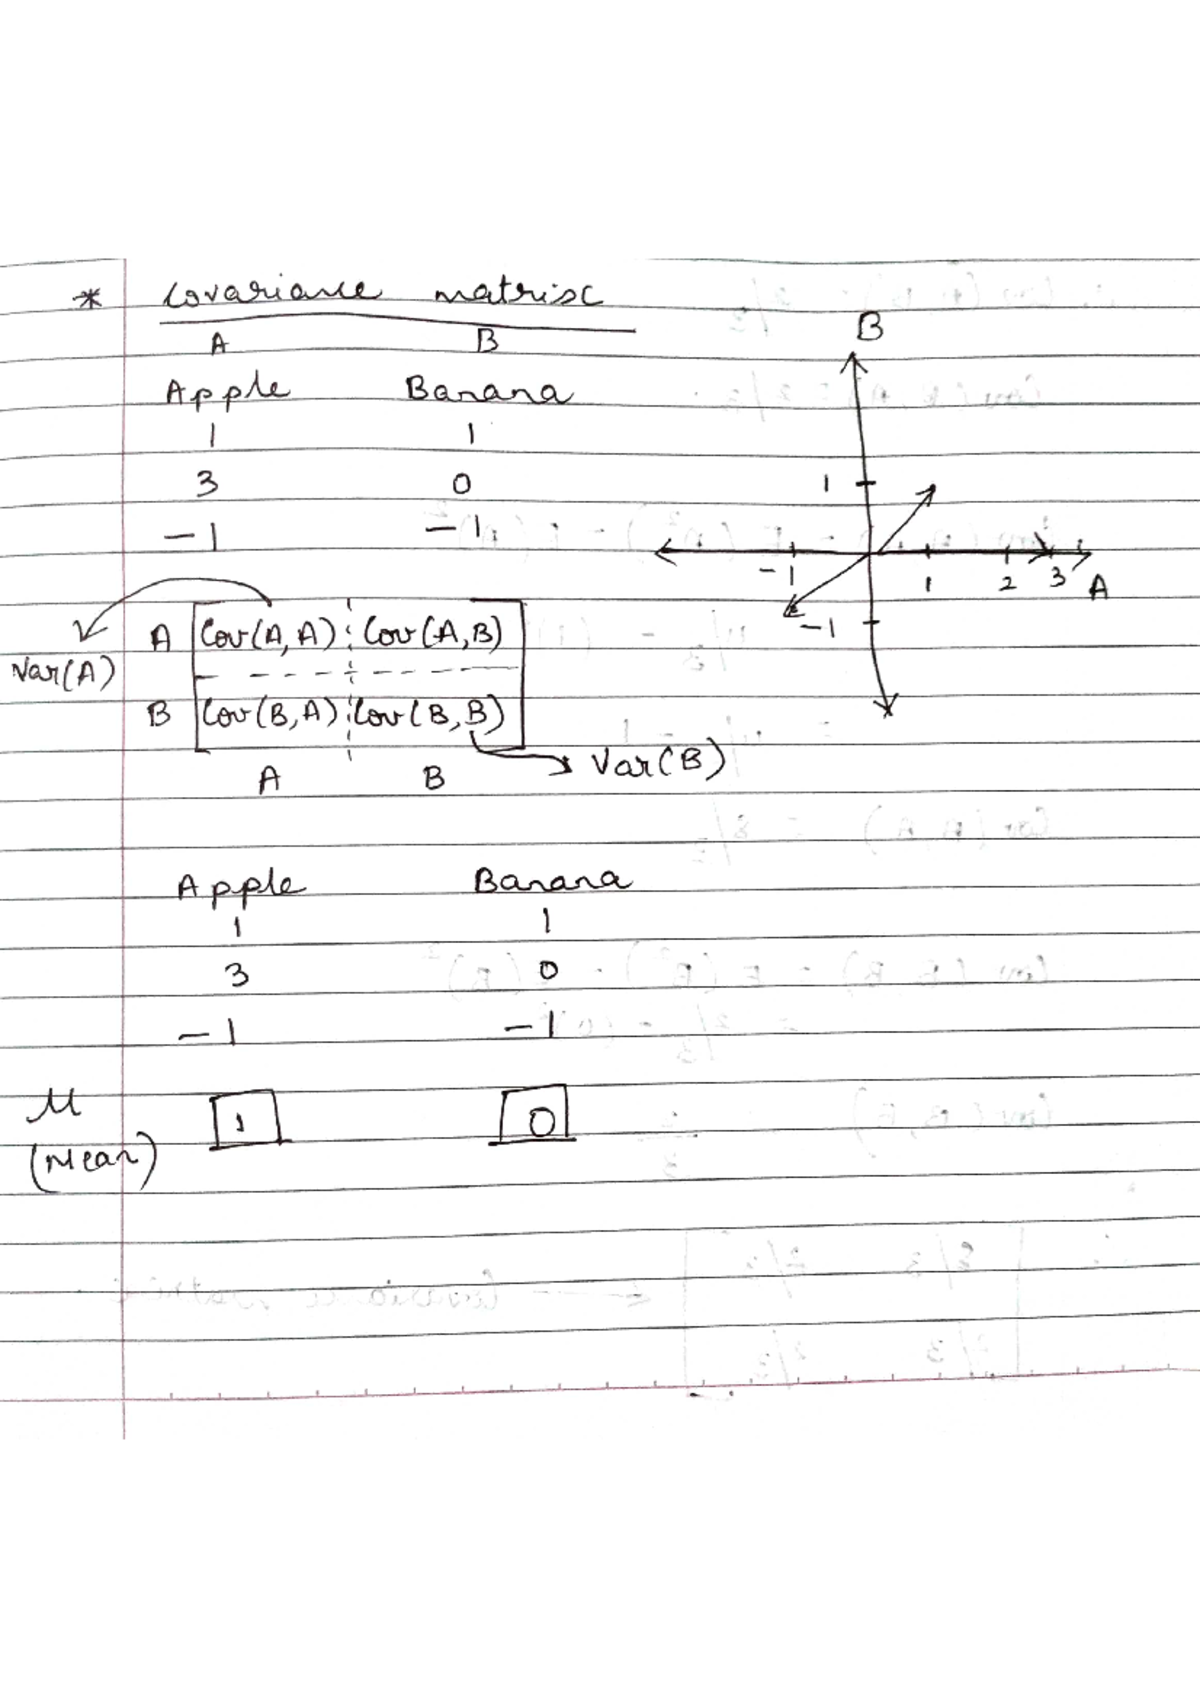 * Covariance matrix
A B
Apple Banana
1 1
3 0
-1 -1
A Cov(A,A) Cov(A,B)
Var(A)
B Cov(B,A) Cov(B,B)
Var(B)
A B
B
1
-1 1 2 3 A
-1
Apple Banana
1 1
3 0
-1 -1
M 1 0
(Mean)